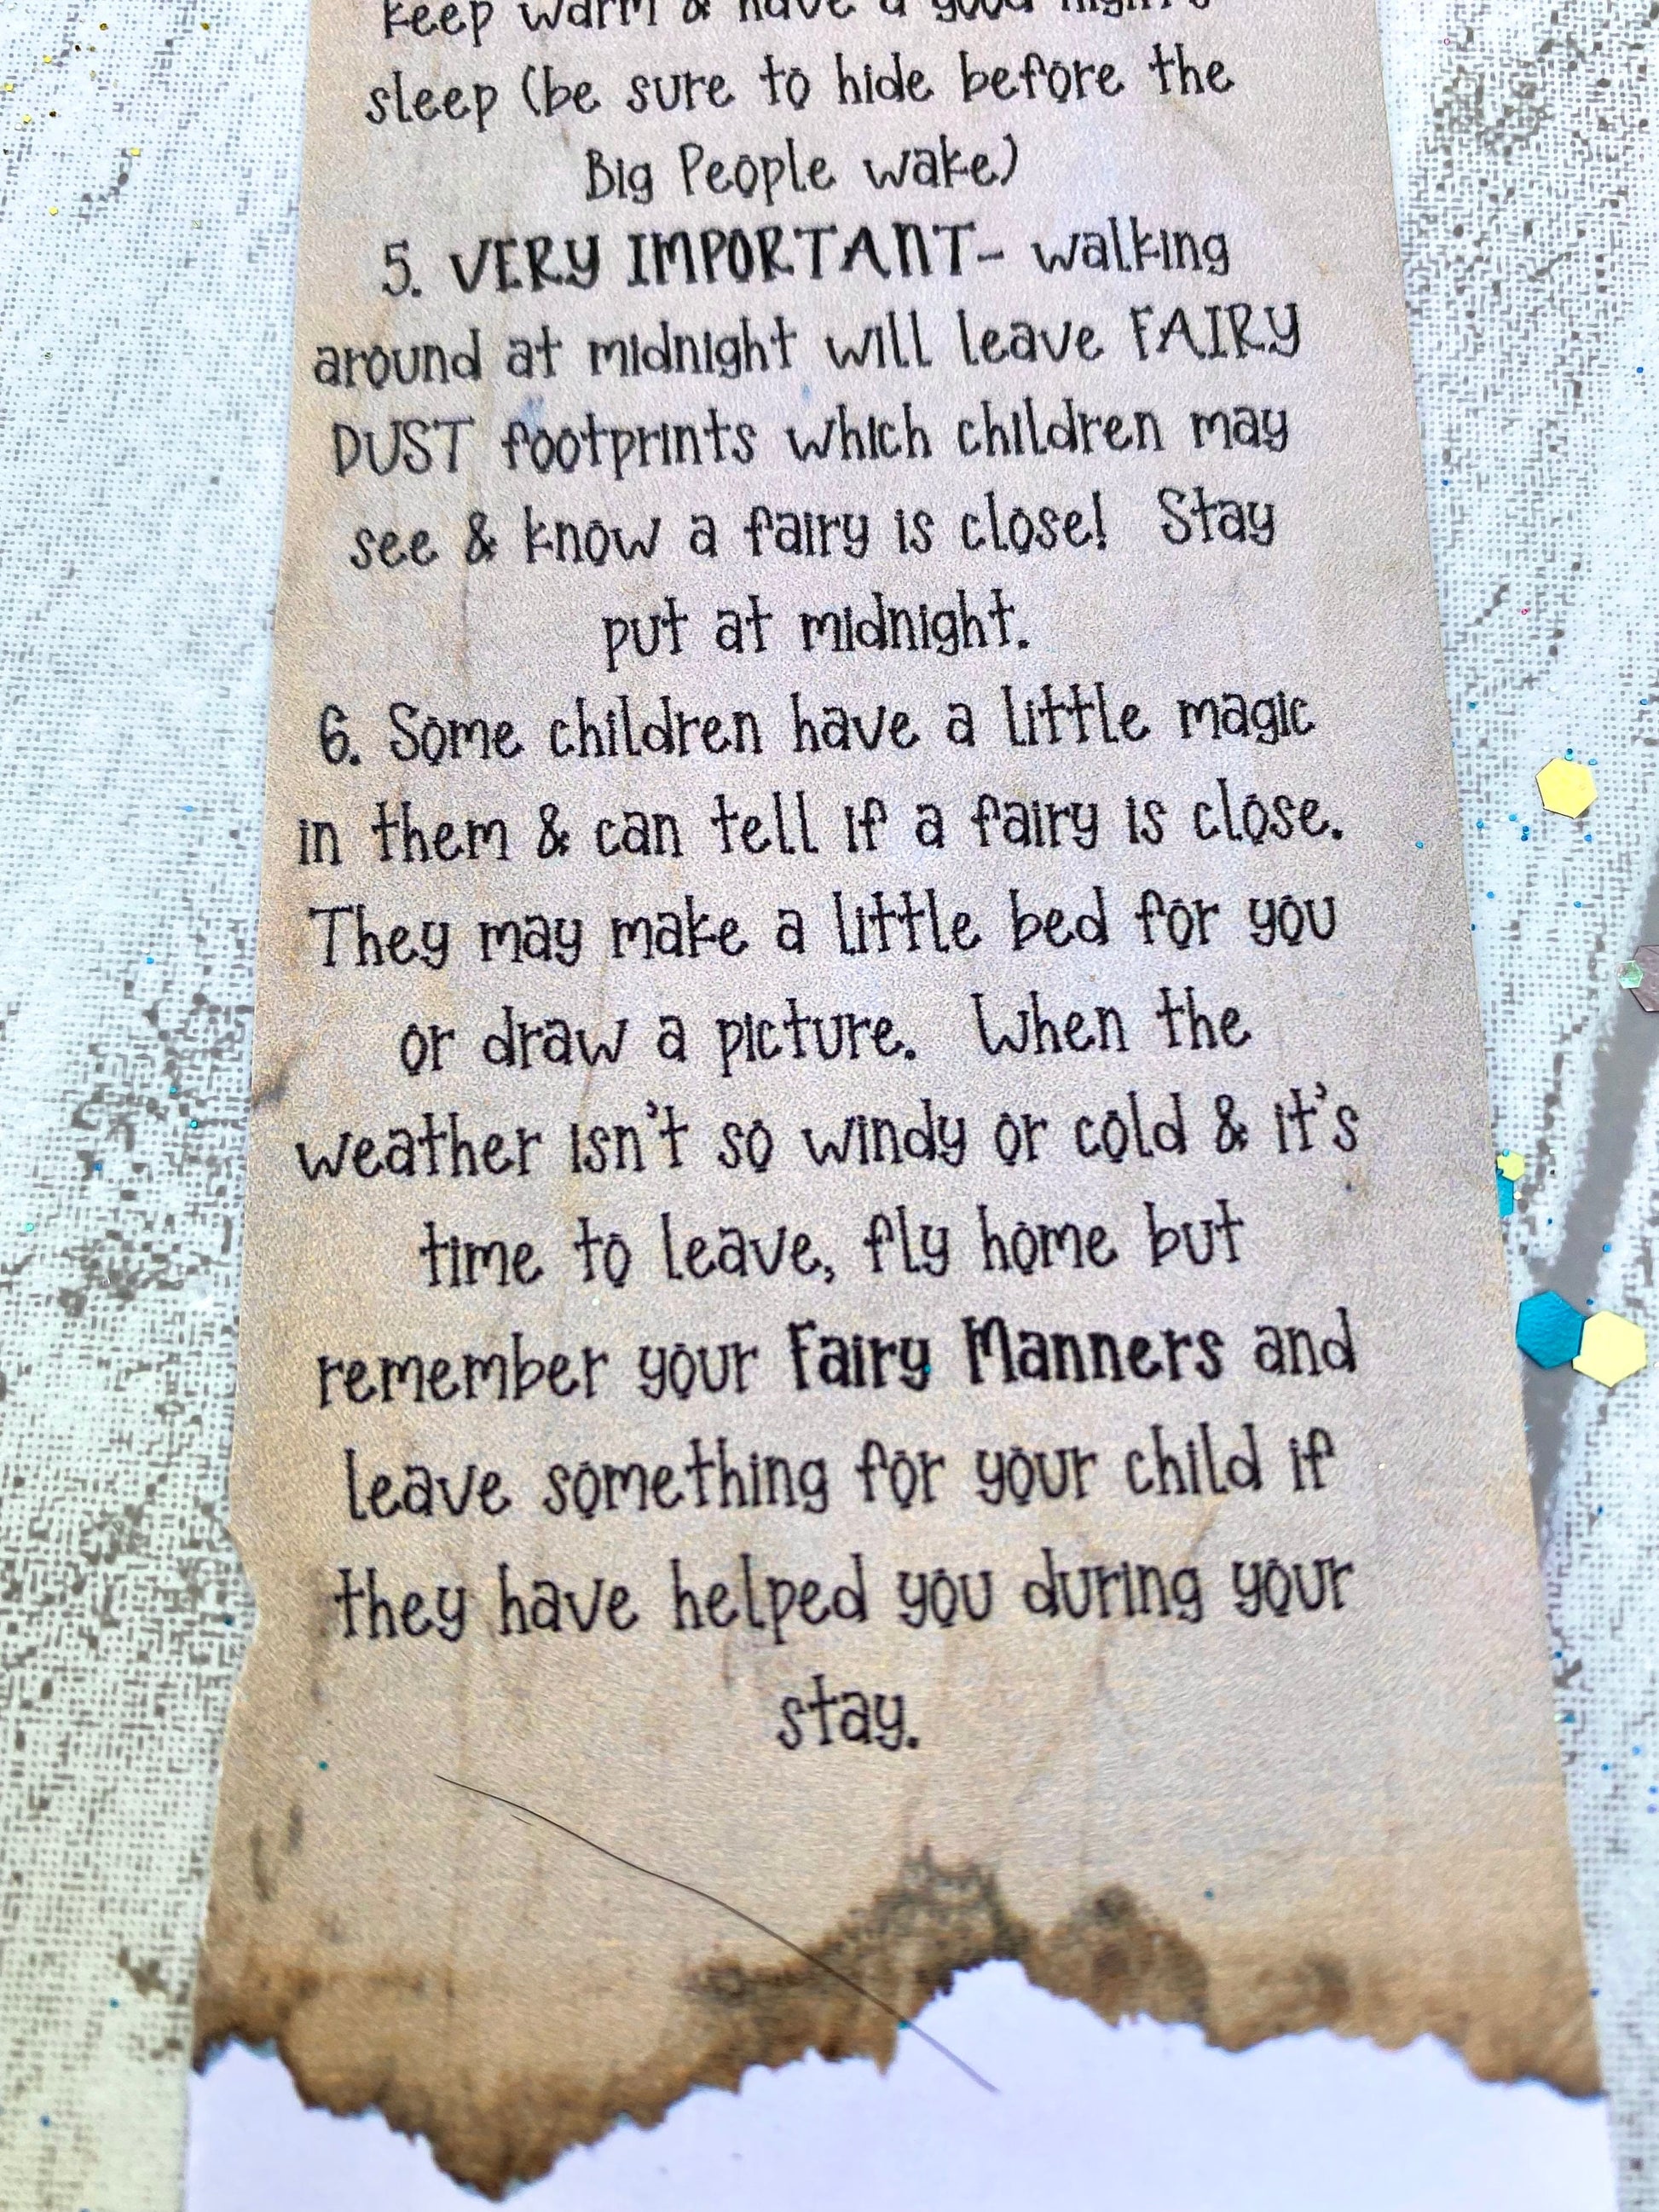 keep warm & have a good night's
sleep (be sure to hide before the
Big People wake)
5. VERY IMPORTANT- walking
around at midnight will leave FAIRY
DUST footprints which children may
see & know a fairy is close!  Stay
put at midnight.
6. Some children have a little magic
in them & can tell if a fairy is close.
They may make a little bed for you
or draw a picture.  When the
weather isn't so windy or cold & it's
time to leave, fly home but
remember your Fairy Manners and
leave something for your child if
they have helped you during your
stay.